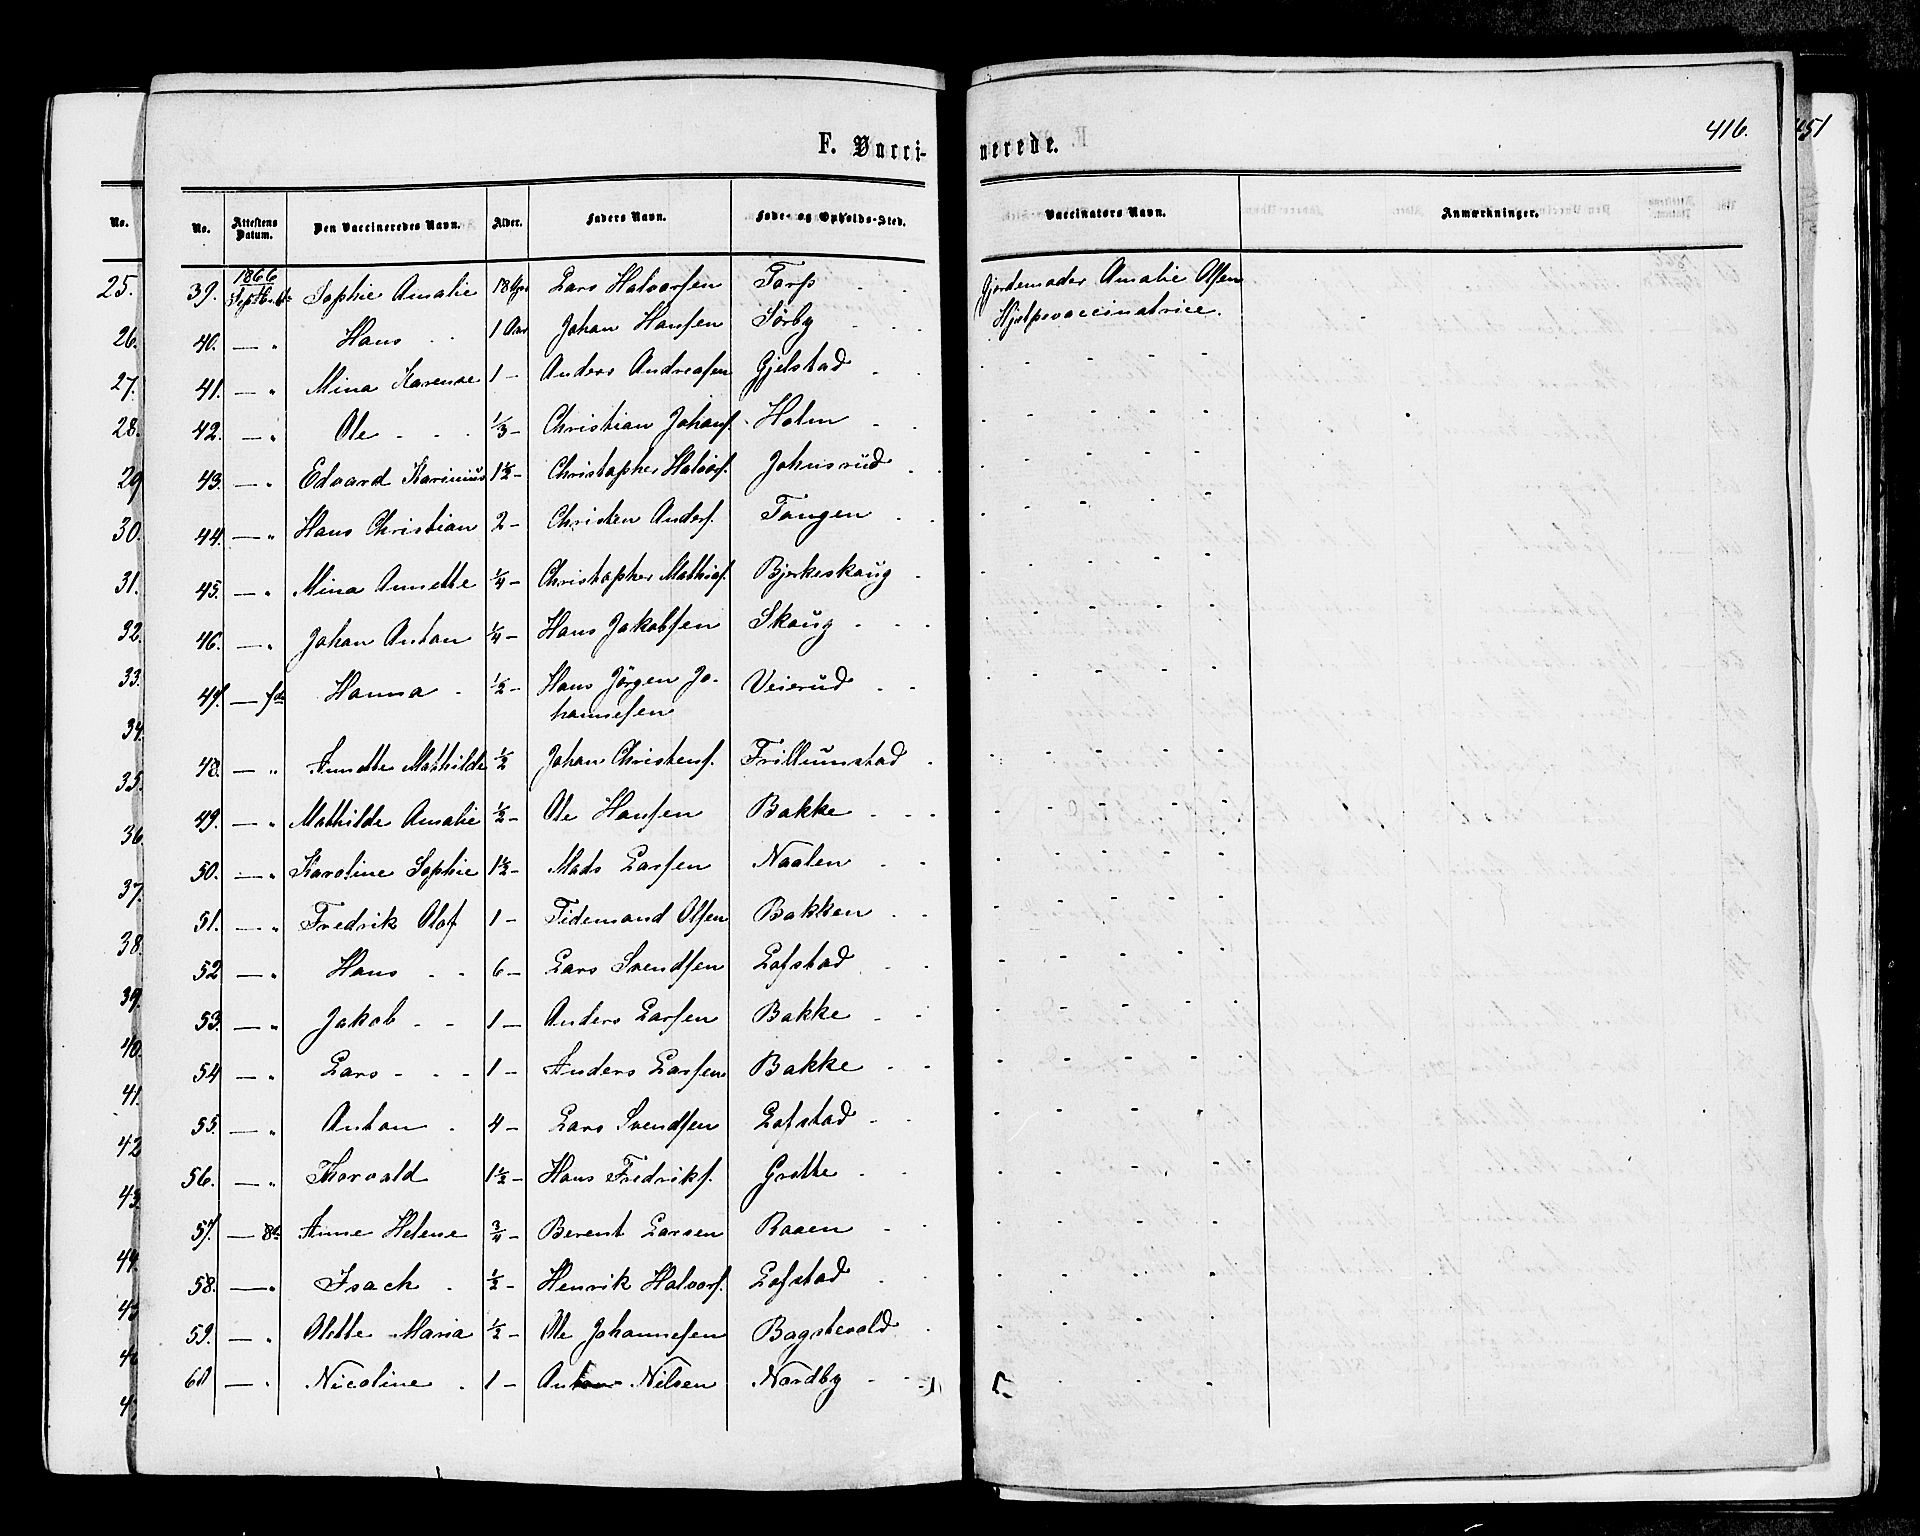 416.
451
F. Vacci-
nerede.
No.
No. Attestens Datum. Den Vaccineredes Navn. Alder. Faders Navn. Føde- og Opholds-Sted. Vaccinators Navn. Anmærkninger.
25.
26.
27.
28.
29
30.
31.
32.
33.
34.
35.
36
37.
38.
39.
40.
41.
42
43.
44.
1866
39. Septbr. Sophie Amalie 18 Lars Halvorsen Torp Gjordemoder Amalie Olsen
Hjelpevaccinatrice.
40. — " Hans 1 Aar Johan Hansen Sørby
41. — " Mina Karenae 1 — Anders Andreasen Gjelstad
42. — " Ole 1/3 — Christian Johans. Holm
43. — " Edvard Karinius 1 1/2 — Christopher Halvors. Johnsrud
44. — " Hans Christian 2 — Christen Anders. Tangen
45. — " Mina Annette 1/4 — Christopher Mathias. Bjerkeskaug
46. — " Johan Anton 1/4 — Hans Jakobsen Skaug
47. — 7de Hanna 1/2 — Hans Jørgen Jo-
hannesen Veierud
48. — " Annette Mathilde 1/2 Johan Christens. Frillumstad
49. — " Mathilde Amalie 1/2 — Ole Hansen Bakke
50. — " Karoline Sophie 1 1/2 — Mads Larsen Naalen
51. — " Fredrik Olaf 1 — Tidemand Olsen Bakken
52 — " Hans 6 — Lars Svendsen Lofstad
53. — " Jakob 1 — Anders Larsen Bakke
54 — " Lars 1 — Anders Larsen Bakke
55. — " Anton 4 — Lars Svendsen Lofstad
56. — " Thorvald 1 1/2 — Hans Fredriks. Grette
57. — 8de Anne Helene 3/4 — Berent Larsen Raaen
58. — " Isach 1/2 — Henrik Halvors. Lofstad
59. — " Olette Maria 1/2 — Ole Johannesen Bagstevold
60 — " Nicoline 1 — Anton Nilsen Nordby